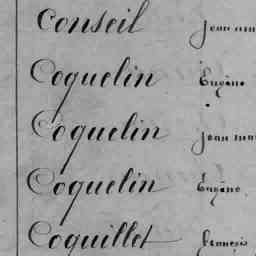 Conseil Jean
Coquelin Eugène
Coquelin Jean
Coquelin Eugène
Coquillet François